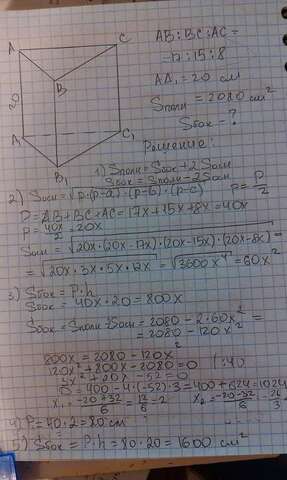 A
C
AB : BC : AC =
= 17 : 15 : 8
B
AA₁ = 20 см
20
Sполн = 2080 см²
Sбок = ?
A₁
C₁
Решение:
B₁
1) Sполн = Sбок + 2Sосн
Sбок = Sполн - 2Sосн
2) Sосн = √p·(p-a)·(p-b)·(p-c)
p = P/2
P = AB + BC + AC = 17x + 15x + 8x = 40x
p = 40x/2 = 20x
Sосн = √20x·(20x-17x)·(20x-15x)·(20x-8x) =
= √20x·3x·5x·12x = √3600x⁴ = 60x²
3) Sбок = P·h
Sбок = 40x·20 = 800x
Sбок = Sполн - 2Sосн = 2080 - 2·60x² =
= 2080 - 120x²
800x = 2080 - 120x²
120x² + 800x - 2080 = 0 | :40
3x² + 20x - 52 = 0
D = 400 - 4·(-52)·3 = 400 + 624 = 1024
x₁ = -20+32/6 = 12/6 = 2 x₂ = -20-32/6 = -26/3
4) P = 40·2 = 80 см
5) Sбок = P·h = 80·20 = 1600 см²